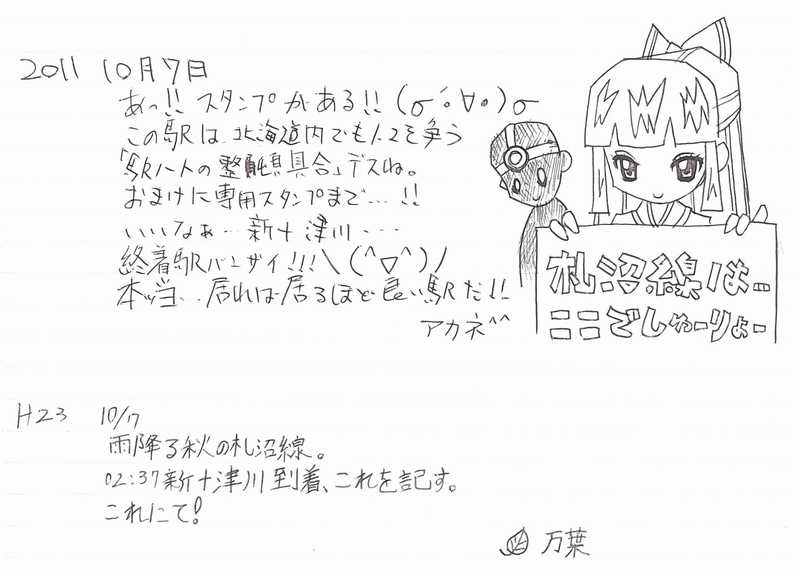 2011 10月7日
あっ!! スタンプがある!! (σ´∘∀∘)σ
この駅は、北海道内でも1.2を争う
「駅ノートの整頓具合」デスね。
おまけに専用スタンプまで…!!
いいなぁ…新十津川…
終着駅バンザイ!!!\(^▽^)/
本当..居れば居るほど良い駅だ!!
アカネ^^
札沼線は…
ここでしゅーりょー
H23 10/17
雨降る秋の札沼線。
02:37新十津川到着、これを記す。
これにて!
万葉